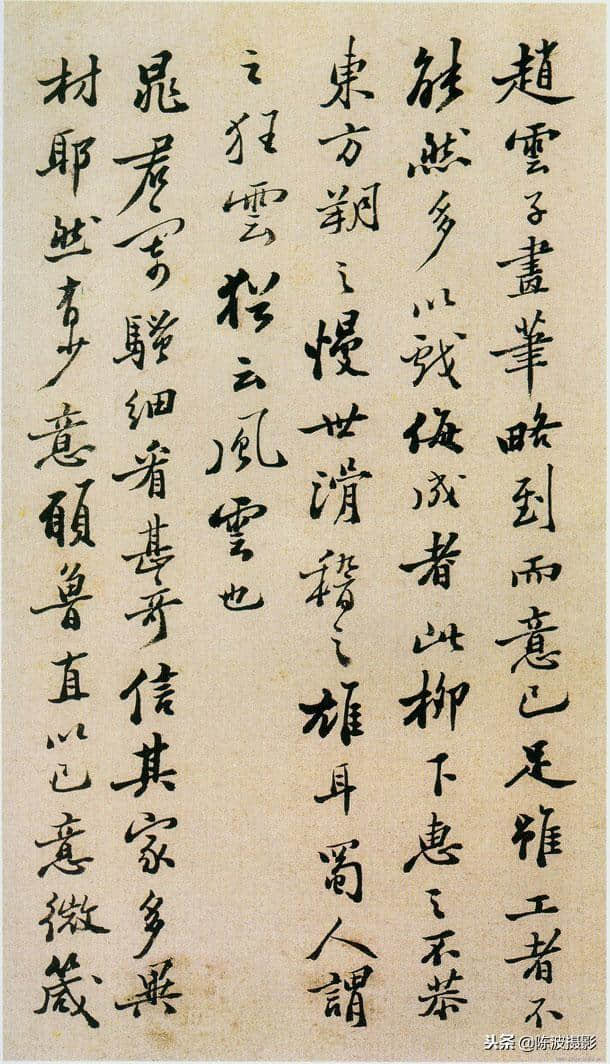 趙雲子畫筆略到而意已足雖工者不
能然多以戲侮成者此柳下惠之不恭
東方朔之慢世滑稽之雄耳蜀人謂
之狂雲猶云風雲也
晁君寄騷細看甚奇信其家多異
材耶然有少意願魯直以己意微箴
头条 @陈波摄影